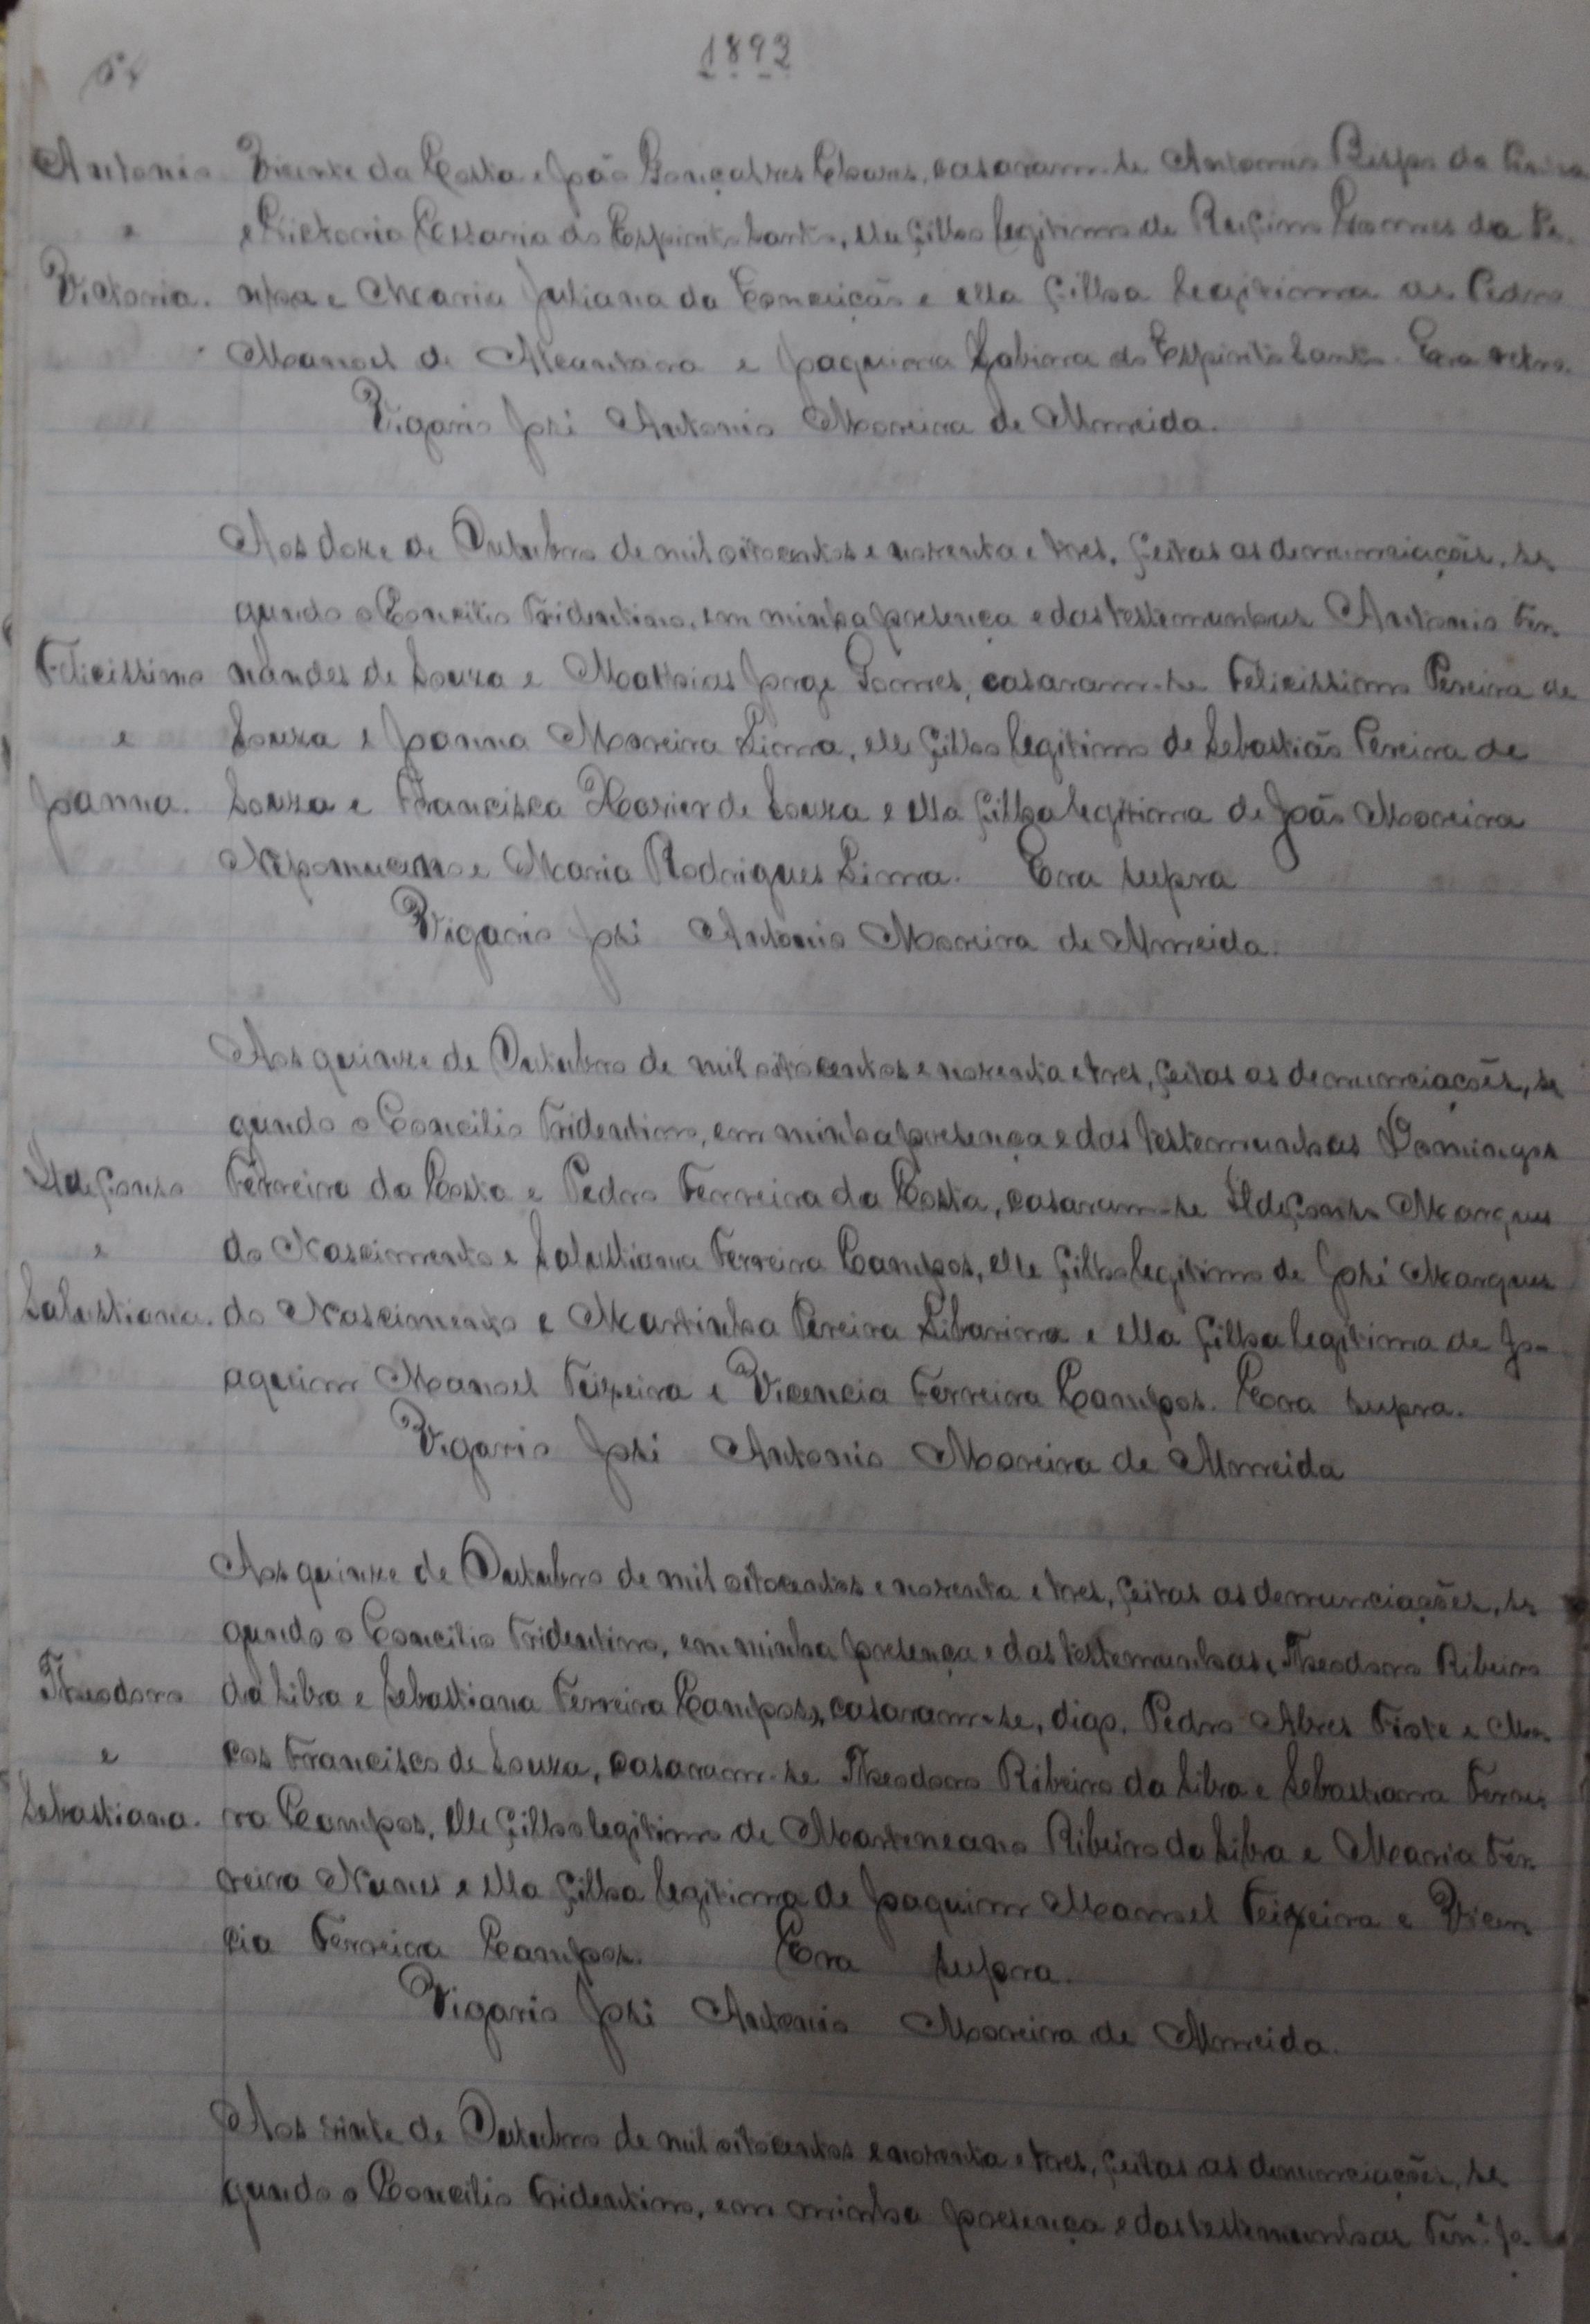 54
1893
Antonio
e
Victoria.
Vicente da Costa e João Gonçalves Chaves, casaram-se Antonio Bispo da
e Victoria Cesaria do Espirito Santo, elle filho legitimo de Rufino Gomes da Pe-
nha e Maria Juliana da Conceição e ella filha legitima de Pedro
Manoel de Alcantara e Joaquina Sabina do Espirito Santo. Era retro.
Vigario José Antonio Moreira de Almeida.
Felicissimo
e
Joanna.
Aos doze de Outubro de mil oitocentos e noventa e tres, feitas as denunciações, se
gundo o Concilio Tridentino, em minha presença e das testemunhas Antonio Fer-
nandes de Souza e Mathias Jorge Gomes, casaram-se Felicissimo Pereira de
Souza e Joanna Moreira Lima, elle filho legitimo de Sebastião Pereira de
Souza e Francisca Xavier de Souza e ella filha legitima de João Moreira
Nepomuceno e Maria Rodrigues Lima. Era supra
Vigario José Antonio Moreira de Almeida.
Ildefonso
e
Salustiana.
Aos quinze de Outubro de mil oitocentos e noventa e tres, feitas as denunciações, se
gundo o Concilio Tridentino, em minha presença e das testemunhas Domingos
Ferreira da Costa e Pedro Ferreira da Costa, casaram-se Ildefonso Marques
do Nascimento e Salustiana Ferreira Campos, elle filho legitimo de José Marques
do Nascimento e Martinha Pereira Libarina e ella filha legitima de Jo-
aquim Manoel Teixeira e Vicencia Ferreira Campos. Era supra.
Vigario José Antonio Moreira de Almeida
Theodoro
e
Sebastiana.
Aos quinze de Outubro de mil oitocentos e noventa e tres, feitas as denunciações, se
gundo o Concilio Tridentino, em minha presença e das testemunhas, Theodoro Ribeiro
da Silva e Sebastiana Ferreira Campos, casaram-se, digo, Pedro Alves e Mar-
cos Francisco de Souza, casaram-se Theodoro Ribeiro da Silva e Sebastiana Ferrei-
ra Campos, elle filho legitimo de Marteneano Ribeiro da Silva e Maria Fer-
reira Nunes e ella filha legitima de Joaquim Manoel Teixeira e Vicen
cia Ferreira Campos. Era supra.
Vigario José Antonio Moreira de Almeida.
Aos vinte de Outubro de mil oitocentos e noventa e tres, feitas as denunciações, se
gundo o Concilio Tridentino, em minha presença e das testemunhas